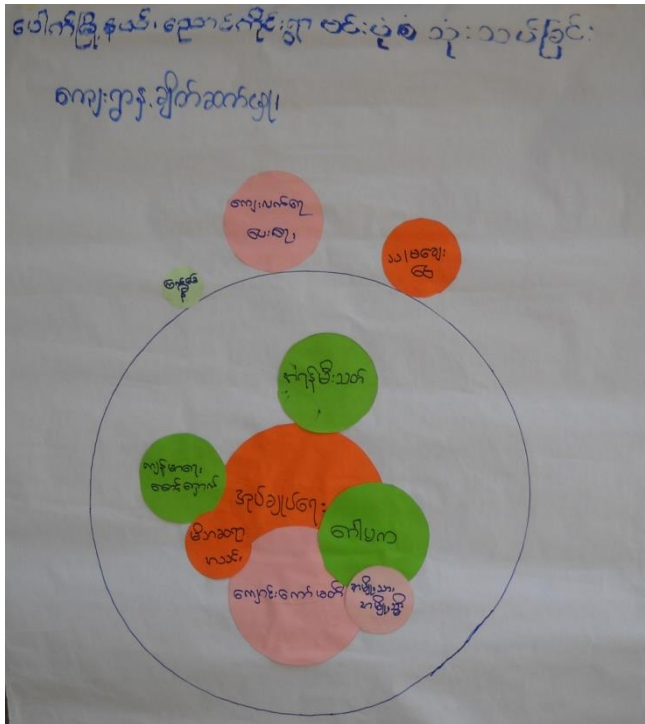 ပေါက်မြို့နယ်၊ ညောင်ကိုင်းရွာ ဗင်းပုံစံ သုံးသပ်ခြင်း
ကျေးရွာနှ့ ချိတ်ဆက်မှု၊
ကျေးလက်ရေ
ပေးရေး
ချေး
အရန်မီးသတ်
ကျန်းမာရေး
စောင့်ရှောက်
အုပ်ချုပ်ရေး
မိဘဆရာ
အသင်း
ဂေါပက
ကျောင်းကော်မတီ
အမျိုးသား
အမျိုးသ္မီး